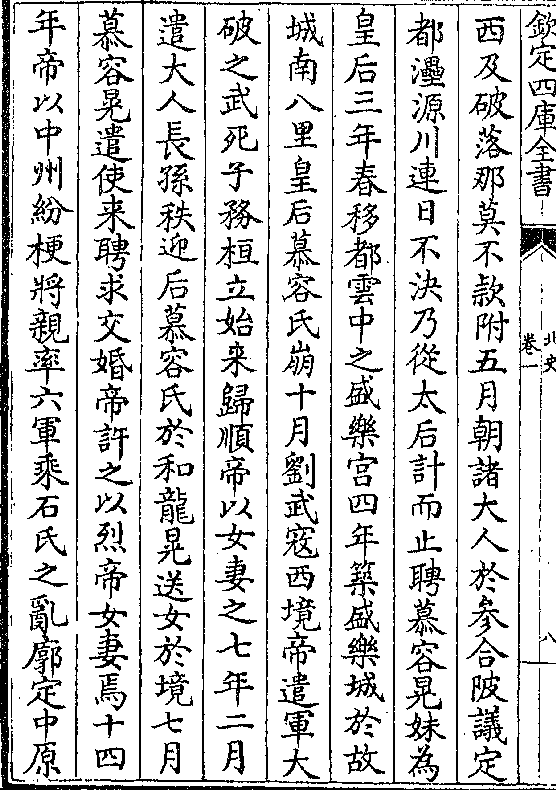 欽定四庫全書
北史
卷一
八
西及破落那莫不款附五月朝諸大人於參合陂議定
都灅源川連日不決乃從太后計而止聘慕容晃妹為
皇后三年春移都雲中之盛樂宫四年築盛樂城於故
城南八里皇后慕容氏崩十月劉武寇西境帝遣軍大
破之武死子務桓立始来歸順帝以女妻之七年二月
遣大人長孫秩迎后慕容氏於和龍晃送女於境七月
慕容晃遣使来聘求交婚帝許之以烈帝女妻焉十四
年帝以中州紛梗將親率六軍乘石氏之亂廓定中原